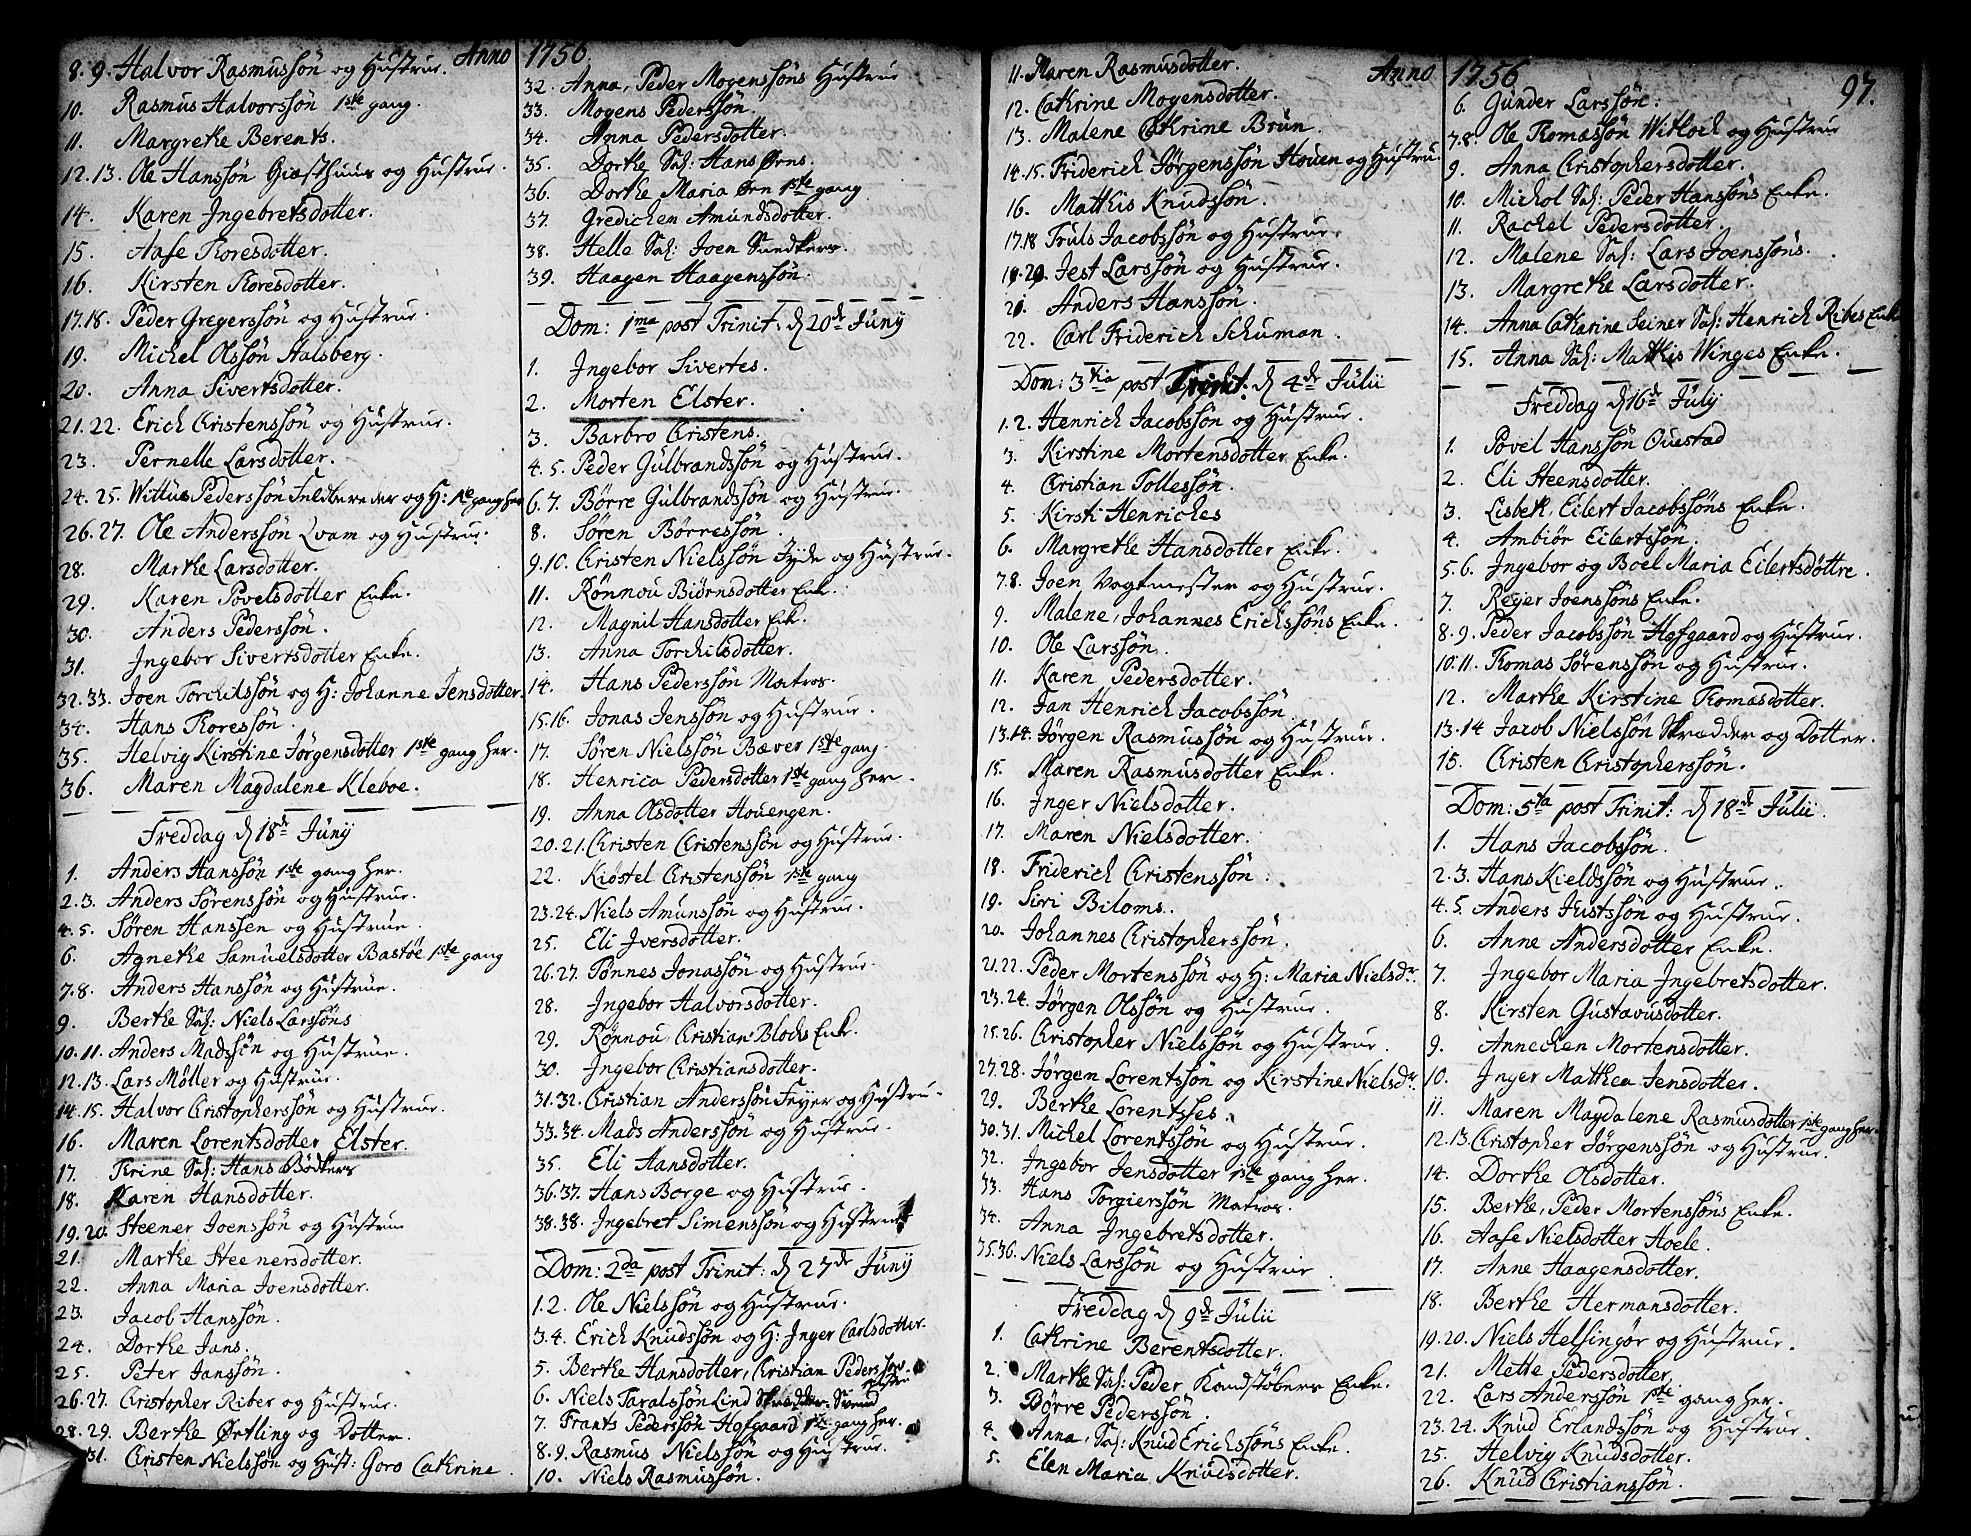 Anno 1756.
8. 9. Halvor Rasmussøn og Hustrue.
10. Rasmus Halvorssøn 1ste gang.
11. Margrethe Berents.
12. 13. Ole Hanssøn Giæsthuus og Hustrue.
14. Karen Ingebretsdotter.
15. Aase Thoresdotter.
16. Kirsten Thoresdotter.
17. 18. Peder Gregerssøn og Hustrue.
19. Michel Olssøn Halsberg.
20. Anna Sivertsdotter.
21. 22. Erich Christenssøn og Hustrue.
23. Pernelle Larsdotter.
24. 25. Wittus Pederssøn Feldbereder og H: 1ste gang her
26. 27. Ole Anderssøn Qvam og Hustrue.
28. Marthe Larsdotter.
29. Karen Povelsdotter Enke.
30. Anders Pederssøn.
31. Ingebor Sivertsdotter Enke.
32. 33. Joen Torchilssøn og H: Johanne Jensdotter.
34. Hans Thoressøn.
35. Helvig Kirstine Jørgensdotter 1ste gang her.
36. Maren Magdalene Kleboe.
Freddag d 18de Junij
1. Anders Hanssøn 1ste gang her.
2. 3. Anders Sørenssøn og Hustrue.
4. 5. Søren Hanssen og Hustrue.
6. Agnethe Samuelsdotter Bastøe 1ste gang
7. 8. Anders Hanssøn og Hustrue.
9. Berthe Sal: Niels Larssøns
10. 11. Anders Madssøn og Hustrue.
12. 13. Lars Møller og Hustrue.
14. 15. Halvor Christopherssøn og Hustrue.
16. Maren Lorentsdotter Elster.
17. Thrine Sal: Hans Bødkers
18. Karen Hansdotter.
19. 20. Steener Joenssøn og Hustrue
21. Marthe Steenersdotter.
22. Anna Maria Joensdotter.
23. Jacob Hanssøn.
24. Dorthe Jans.
25. Peter Janssøn.
26. 27. Christopher Riber og Hustrue.
28. 29. Berthe Ørtling og Dotter
31. Christen Nielssøn og Hust: Goro Cathrine.
32. Anna, Peder Mogenssøns Hustrue
33. Mogens Pederssøn.
34. Anna Pedersdotter.
35. Dorthe Sal: Hans Ørns.
36. Dorthe Maria Ørn 1ste gang
37. Gredichen Amundsdotter.
38. Helle Sal: Joen Sundkers.
39. Haagen Haagenssøn.
Dom: 1ma post Trinit: d 20de Junij
1. Ingebor Sivertes.
2. Morten Elster.
3. Barbro Christens.
4. 5. Peder Gulbrandssøn og Hustrue.
6. 7. Børre Gulbrandssøn og Hustrue.
8. Søren Børressøn.
9. 10. Christen Nielssøn Jyde og Hustrue.
11. Rønnou Biørnsdotter Enke.
12. Magnil Hansdotter Enk.
13. Anna Torchilsdotter.
14. Hans Pederssøn Matros.
15. 16. Jonas Jenssøn og Hustrue.
17. Søren Nielssøn Bæver 1ste gang.
18. Henrica Pedersdotter 1ste gang her.
19. Anna Olsdotter Houengen.
20. 21. Christen Christenssøn og Hustrue.
22. Kiøstel Christenssøn 1ste gang
23. 24. Niels Amunssøn og Hustrue.
25. Eli Iversdotter.
26. 27. Tønnes Jonassøn og Hustrue.
28. Ingebor Halvorsdotter.
29. Rønnou Christian Blochs Enke.
30. Ingebor Christiansdotter.
31. 32. Christian Anderssøn Feyer og Hustru-
33. 34. Mads Anderssøn og Hustrue.
35. Eli Hansdotter.
36. 37. Hans Borge og Hustrue.
38. 38. Ingebret Simenssøn og Hustrue
Dom: 2da post Trinit: d 27de Junij
1. 2. Ole Nielssøn og Hustrue.
3. 4. Erich Knudssøn og H: Inger Carlsdotter.
5. Berthe Hansdotter, Christian Pederssøns Hustrue
6. Niels Taralssøn Lind Skrædder Svend
7. Frants Pederssøn Hofgaard 1ste gang her.
8. 9. Rasmus Nielssøn og Hustrue.
10. Niels Rasmussøn.
Anno 1756
97.
11. Maren Rasmusdotter.
12. Cathrine Mogensdotter.
13. Malene Cathrine Brun.
14. 15. Friderich Jørgenssøn Houen og Hustru.
16. Matthis Knudssøn.
17. 18 Truls Jacobssøn og Hustrue.
19. 20. Jest Larssøn og Hustrue.
21. Anders Hanssøn.
22. Carl Friderich Schuman.
Dom: 3tia post Trinit: d 4de Julii
1. 2. Henrich Jacobssøn og Hustrue.
3. Kirstine Mortensdotter Enke.
4. Christian Tollessøn.
5. Kirsti Henriches
6. Margrethe Hansdotter Enke.
7. 8. Joen Vogtmester og Hustrue.
9. Malene, Johannes Erichssøns Enke.
10. Ole Larssøn.
11. Karen Pedersdotter.
12. Jan Henrich Jacobssøn
13. 14. Jørgen Rasmussøn og Hustrue.
15. Maren Rasmusdotter Enke.
16. Inger Nielsdotter.
17. Maren Nielsdotter.
18. Friderich Christenssøn.
19. Siri Biloms.
20. Johannes Christopherssøn.
21. 22. Peder Mortenssøn og H: Maria Nielsdr.
23. 24. Jørgen Olssøn og Hustrue.
25. 26. Christopher Nielssøn og Hustrue.
27. 28. Jørgen Lorentssøn og Kirstine Nielsdr.
29. Berthe Lorentsses.
30. 31. Michel Lorentssøn og Hustrue.
32. Ingebor Jensdotter 1ste gang her.
33. Hans Torgierssøn Matros.
34. Anna Ingebretsdotter.
35. 36. Niels Larssøn og Hustrue.
Freddag d 9de Julii
1. Cathrine Berentsdotter.
2. Marthe Sal: Peder Kandstøbers Enke.
3. Børre Pederssøn.
4. Anna, Sal: Knud Erichssøns Enke.
5. Elen Maria Knudsdotter.
6. Gunder Larssøn.
7. 8. Ole Thomassøn Witloch og Hustrue
9. Anna Christophersdotter.
10. Michol Sal: Peder Hanssøns Enke.
11. Rachel Pedersdotter.
12. Malene Sal: Lars Joenssøns.
13. Margrethe Larsdotter.
14. Anna Catharine Seiner Sal: Henrich Ribes Enke
15. Anna Sal: Matthis Winges Enke.
Freddag d 16de Julij
1. Povel Hanssøn Questad
2. Eli Steensdotter.
3. Lisbeth, Eilert Jacobssøns Enke.
4. Ambiør Eilertssøn.
5. 6. Ingebor og Boel Maria Eilertsdøttre.
7. Reger Joenssøns Enke.
8. 9. Peder Jacobssøn Hofgaard og Hustrue.
10. 11. Thomas Sørenssøn og Hustrue.
12. Marthe Kirstine Thomasdotter.
13. 14 Jacob Nielssøn Skrædder og Dotter.
15. Christen Christopherssøn.
Dom: 5ta post Trinit: d 18de Julii.
1. Hans Jacobssøn.
2. 3. Hans Kieldssøn og Hustrue.
4. 5. Anders Justssøn og Hustrue.
6. Anne Andersdotter Enke.
7. Ingebor Maria Ingebretsdotter.
8. Kirsten Gustavusdotter.
9. Annechen Mortensdotter.
10. Inger Mathea Jensdotter.
11. Maren Magdalene Rasmusdotter 1ste gang her.
12. 13. Christopher Jørgenssøn og Hustrue.
14. Dorthe Olsdotter.
15. Berthe, Peder Mortenssøns Enke.
16. Aase Nielsdotter Hoele.
17. Anne Haagensdotter.
18. Berthe Hermansdotter.
19. 20. Niels Helsingør og Hustrue.
21. Mette Pedersdotter
22. Lars Anderssøn 1ste gang her.
23. 24. Knud Erlandssøn og Hustrue.
25. Helvig Knudsdotter.
26. Knud Christianssøn.